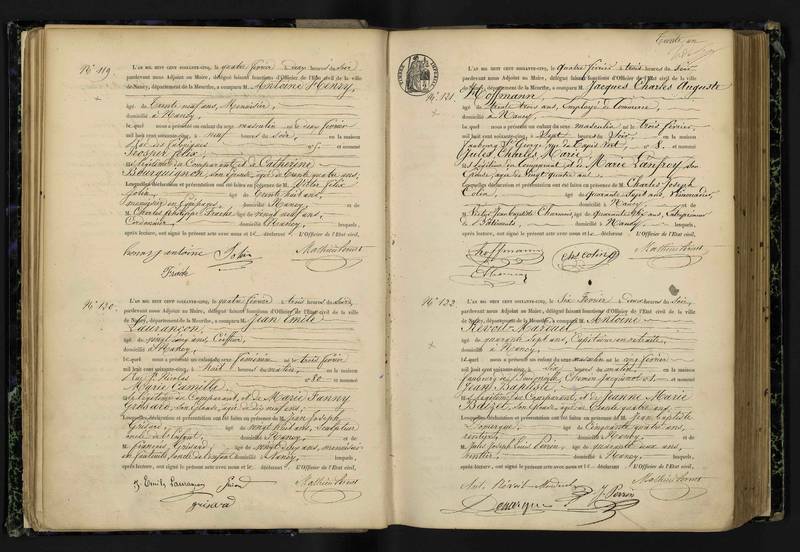 N° 119.
L'AN MIL HUIT CENT SOIXANTE-CINQ, le quatre février à deux heures du soir
pardevant nous Adjoint au Maire, délégué faisant fonctions d'Officier de l'Etat civil de la ville
de Nancy, département de la Meurthe, a comparu M. Antoine Henry,
âgé de trente neuf ans, Menuisier,
domicilié à Nancy,
lequel nous a présenté un enfant du sexe masculin né le deux février
mil huit cent soixante-cinq, à neuf heures du soir, en sa maison
Rue des Fabriques n° 5. et nommé
Prosper Félix
fils légitime du Comparant et de Catherine
Bourguignon son Epouse âgée de trente quatre ans.
Lesquelles déclaration et présentation ont été faites en présence de M. Victor Félix
Jolin âgé de trente huit ans,
domicilié à Nancy, et de
M. Charles âgé de vingt neuf ans,
Cordonnier domicilié à Nancy, lesquels,
après lecture, ont signé le présent acte avec nous et le déclarant L'Officier de l'Etat civil,
henry antoine Jolin Mathieu
N° 120.
L'AN MIL HUIT CENT SOIXANTE-CINQ, le quatre février à trois heures du soir,
pardevant nous Adjoint au Maire, délégué faisant fonctions d'Officier de l'Etat civil de la ville
de Nancy, département de la Meurthe, a comparu M. Jean Emile
Laurançon
âgé de vingt cinq ans, Coiffeur,
domicilié à Nancy,
lequel nous a présenté un enfant du sexe féminin né le trois février
mil huit cent soixante-cinq, à huit heures du matin, en sa maison
Rue St Nicolas n° 80 et nommé
Marie Camille
fille légitime du Comparant et de Marie Fanny
Grisard, son Epouse, âgée de
Lesquelles déclaration et présentation ont été faites en présence de M. Jean Joseph
Grisard âgé de vingt huit ans, Sculpteur
domicilié à Nancy, et de
M. François Grisard âgé de vingt deux ans, menuisier
domicilié à Nancy, lesquels,
après lecture, ont signé le présent acte avec nous et le déclarant L'Officier de l'Etat civil,
J. Emile Laurançon Mathieu
grisard
Trente un
N° 121.
L'AN MIL HUIT CENT SOIXANTE-CINQ, le quatre février à trois heures du soir,
pardevant nous Adjoint au Maire, délégué faisant fonctions d'Officier de l'Etat civil de la ville
de Nancy, département de la Meurthe, a comparu M. Jacques Charles Auguste
Hoffmann
âgé de trente trois ans, Employé de Commerce,
domicilié à Nancy,
lequel nous a présenté un enfant du sexe masculin né le trois février,
mil huit cent soixante-cinq, à sept heures du soir, en sa maison
Faubourg St George rue du Tapis Vert n° 8. et nommé
Jules Charles Marie
fils légitime du Comparant et de Marie Lanfrey son
Epouse âgée de vingt quatre ans
Lesquelles déclaration et présentation ont été faites en présence de M. Charles Joseph
Colin âgé de quarante sept ans,
domicilié à Nancy et de
M. Victor Jean Baptiste âgé de quarante ans, Entrepreneur
de Bâtiments domicilié à Nancy lesquels,
après lecture, ont signé le présent acte avec nous et le déclarant L'Officier de l'Etat civil,
Hoffmann Chs Colin Mathieu
N° 122.
L'AN MIL HUIT CENT SOIXANTE-CINQ, le Six Février à deux heures du soir,
pardevant nous Adjoint au Maire, délégué faisant fonctions d'Officier de l'Etat civil de la ville
de Nancy, département de la Meurthe, a comparu M. Antoine
âgé de quarante sept ans, Capitaine en retraite,
domicilié à Nancy,
lequel nous a présenté un enfant du sexe masculin né le cinq février
mil huit cent soixante-cinq, à six heures du matin, en sa maison
Faubourg et nommé
Jean Baptiste
fils légitime du Comparant, et de Jeanne Marie
son Epouse, âgée de trente quatre ans
Lesquelles déclaration et présentation ont été faites en présence de M. Jean Baptiste
Demarque âgé de cinquante quatre ans,
rentier, domicilié à Nancy, et de
M. Jules Joseph Louis Perrin âgé de quarante deux ans,
rentier domicilié à Nancy, lesquels,
après lecture, ont signé le présent acte avec nous et le déclarant L'Officier de l'Etat civil,
Demarque J. Perrin Mathieu